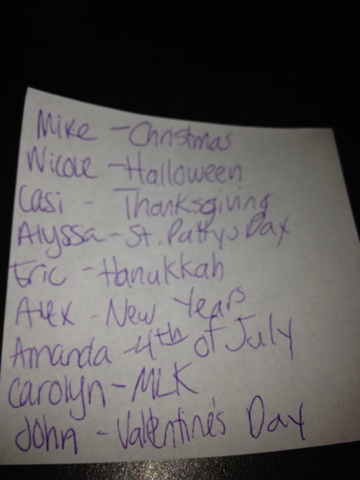 Mike - Christmas
Nicole - Halloween
Casi - Thanksgiving
Alyssa - St. Pattys Day
Eric - Hanukkah
Alex - New Years
Amanda - 4th of July
Carolyn - MLK
John - Valentine's Day